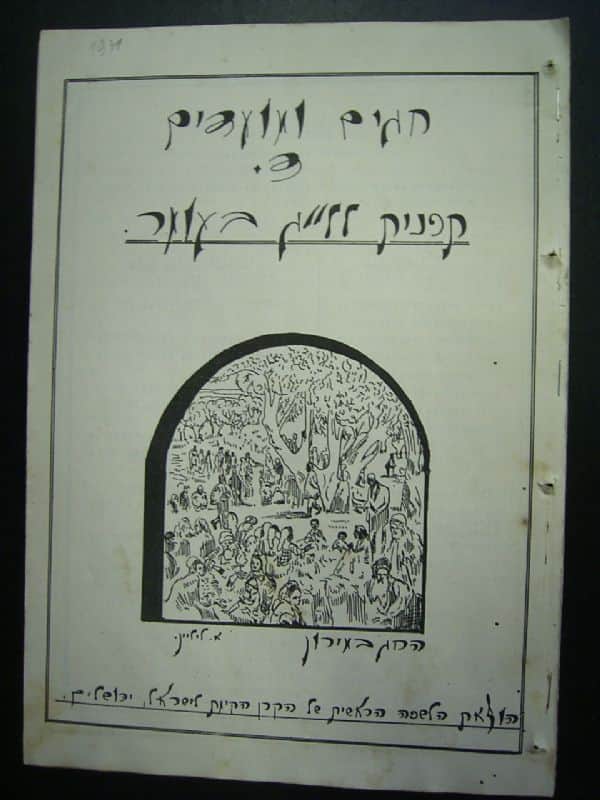 חגים ומועדים
ד.
תכנית לל״ג בעומר.
החג במירון א. ליליין.
הוצאת הלשכה הראשית של הקרן הקימת לישראל, ירושלים.